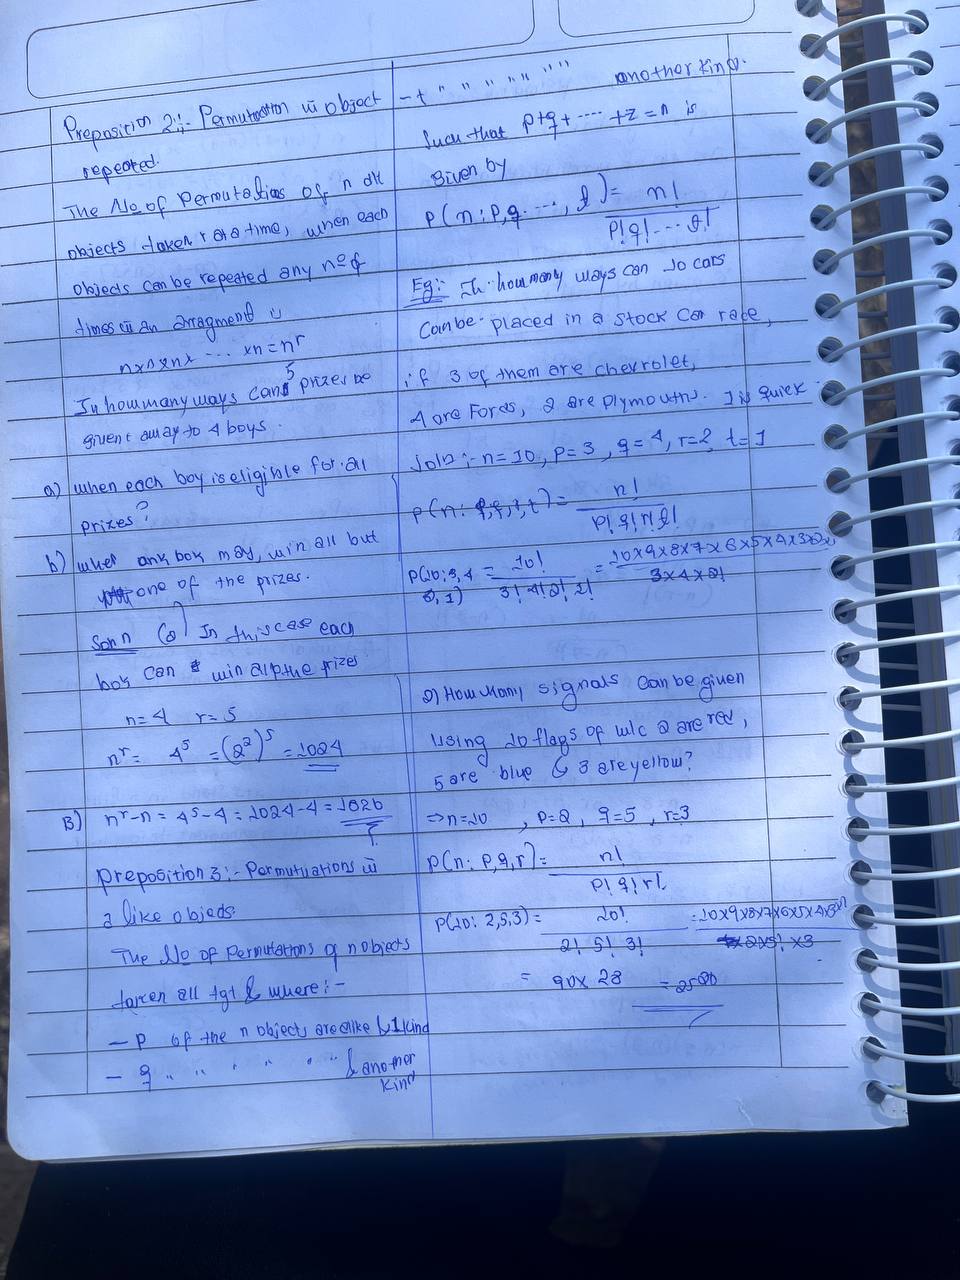 Preposition 2:- Permutation w object
repeated.
The No of Permutations of n d/t
objects taken r at a time, when each
objects can be repeated any no of
times in an arragment is
n×n×n× ... ×n = nʳ
In how many ways can 5 prizes be
given away to 4 boys.
a) when each boy is eligible for all
prizes?
b) when any boy may, win all but
one of the prizes.
Soln (a) In this case each
boy can win all the prizes
n=4 r=5
nʳ = 4⁵ = (2²)⁵ = 1024
B) nʳ-n = 4⁵-4 = 1024-4 = 1020
preposition 3:- Permutuations w
a like objeds.
The No of Permutations of n objects
taken all tgt & where:-
- P of the n objects are alike & 1 kind
- q " " " " " & another
kind
- t " " " " " " another kind.
Such that p+q+ ---- +z = n is
given by
P(n: P,q ...., ) = n!
P! q! ... !
Eg: In how many ways can 10 cars
can be placed in a stock car race,
if 3 of them are chevrolet,
4 are Fords, 2 are plymouths. 1 is Quick
Soln:- n=10, p=3, q=4, r=2, t=1
P(n: , q, r, t) = n!
P! q! r! !
P(10: 3, 4 = 10! = 10×9×8×7×6×5×4×3×2×
2, 1) 3! 4! 2! 1! 3×4×2!
2) How Many signals can be given
Using 10 flags of w/c 2 are red,
5 are blue & 3 are yellow?
⇒ n=10 , p=2, q=5, r=3
P(n: P, q, r) = n!
P! q! r!
P(10: 2,5,3) = 10! = 10×9×8×7×6×5×4×3
2! 5! 3! 2×5! ×3
= 90×28 = 2520